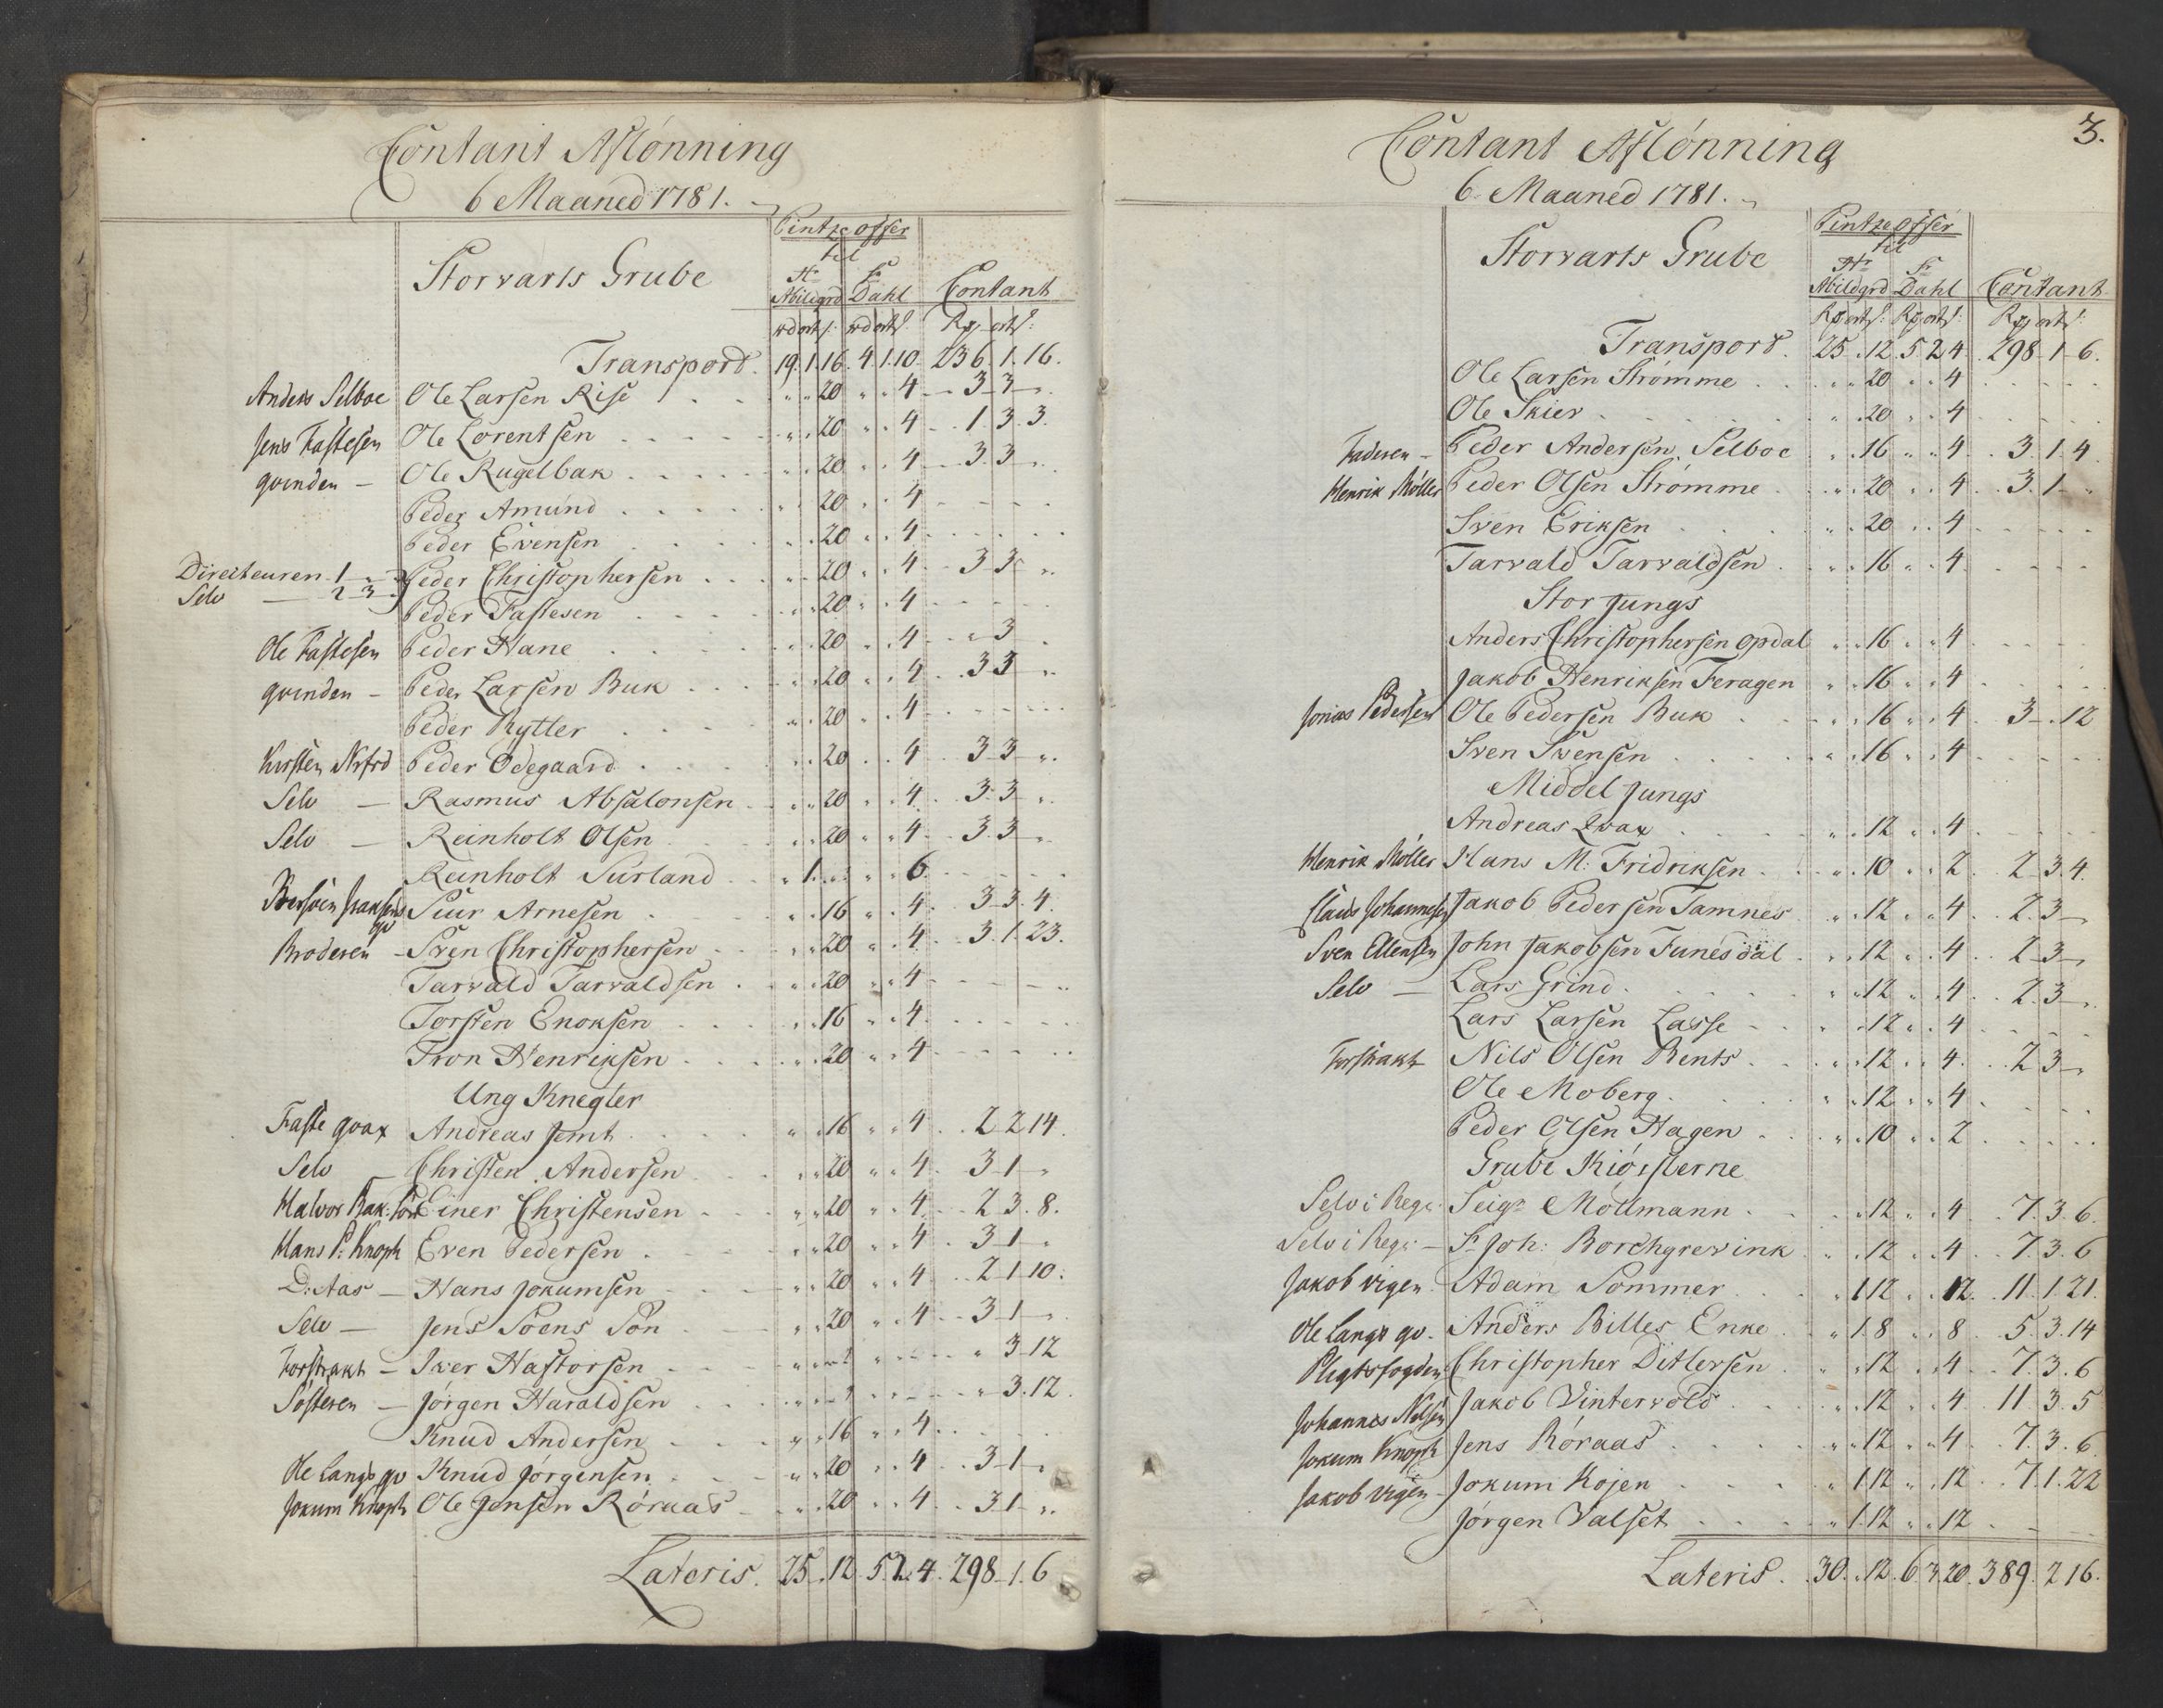 Contant Aflønning
6 Maaned 1781.
Pintze offer
til
Storvarts Grube
Hr Abildgrd Sr Dahl Contant
rd ort s: rd ort s: Rd ort s:
Transport. 19.1.16. 4.1.10. 236.1.16.
Anders Selboe Ole Larsen Rise " " 20 " " 4 3 3 "
Jens Fastesen Ole Lorentsen " " 20 " " 4 1 3 3.
qvinden — Ole Rugelbak " " 20 " " 4 3 3 "
Peder Amund " " 20 " " 4
Peder Evensen " " 20 " " 4
Directeuren 1 " " Peder Christophersen " " 20 " " 4 3 3 "
Selv — 2 3 " Peder Fastesen " " 20 " " 4
Ole Fastesen Peder Hane " " 20 " " 4 " 3 "
qvinden — Peder Larsen Buk " " 20 " " 4 3 3 "
Peder Rytter " " 20 " " 4
Kirsten Nrfrd Peder Ödegaard " " 20 " " 4 3 3 "
Selv — Rasmus Absalonsen " " 20 " " 4 3 3 "
Selv — Reinholt Olsen " " 20 " " 4 3 3 "
Reinholt Surland " 1 " " " 6
Siur Arnesen " " 16 " " 4 3 3. 4.
Broderen — Sven Christophersen " " 20 " " 4 3. 1. 23.
Tarvald Tarvaldsen " " 20 " " 4
Torsten Enoksen " " 16 " " 4
Tron Henriksen " " 20 " " 4
Ung Knegter
Faste qvax Andreas Jemt " " 16 " " 4 2 2 14.
Selv — Christen Andersen " " 20 " " 4 3 1 "
Halvor Einer Christensen " " 20 " " 4 2 3. 8.
Hans P: Knoph Even Pedersen " " 20 " " 4 3 1 "
D: Aas — Hans Jokumsen " " 20 " " 4 2 1 10.
Selv — Jens Söens Sön " " 20 " " 4 3 1 "
Forstrakt — Iver Hastorsen " 3 12
Søsteren — Jørgen Haraldsen " 3. 12.
Knud Andersen " " 16 " " 4
Ole Langs qv Knud Jørgensen " " 20 " " 4 3 1 "
Jokum Knoph Ole Jensen Röraas " " 20 " " 4 3 1 "
Lateris. 25 " 12. 5. 2. 4. 298 1. 6
3.
Contant Aflønning
6 Maaned 1781.
Pintze offer
til
Storvarts Grube
Hr Abildgrd Sr Dahl Contant
Rd ort s: Rd ort s: Rd ort s:
Transport. 25 " 12. 5 2 4 298 1 6.
Ole Larsen Strømme " " 20 " " 4
Ole Skier " " 20 " " 4
Faderen — Peder Andersen Selboe " " 16 " " 4 3. 1. 4
Henrik Møller Peder Olsen Strømme " " 20 " " 4 3. 1 "
Sven Eriksen " " 20 " " 4
Tarvald Tarvaldsen " " 16 " " 4
Stor Jungs
Anders Christophersen Opdal " " 16 " " 4
Jakob Henriksen Feragen " " 16 " " 4
Jonas Pedersen Ole Pedersen Buk " " 16 " " 4 3 " 12
Sven Svensen " " 16 " " 4
Middel Jungs
Andreas Qvax " " 12 " " 4
Henrik Møller Hans M: Fridriksen " " 10 " " 2 2 3 4.
Claus Johannesen Jakob Pedersen Tamnes " " 12 " " 4 2. 3 "
Sven Ellensen John Jakobsen Funesdal " " 12 " " 4 2 3 "
Selv — Lars Grind " " 12 " " 4 2. 3 "
Lars Larsen Lasse " " 12 " " 4
Forstrakt Nils Olsen Rents " " 12 " " 4 2 3 "
Ole Moberg " " 12 " " 4
Peder Olsen Hagen " " 10 " " 2
Grube Kiørslerne
Selv i Regn: Seigr Möllmann " " 12 " " 4 7. 3. 6.
Selv i Regn: — Sr Joh: Borchgrevink " " 12 " " 4 7. 3. 6
Jakob Vigen Adam Sommer " 1 12 " " 12 11. 1. 21.
Ole Langs qv. Anders Billes Enke " 1. 8 " " 8 5. 3. 14
Pligtsfogden Christopher Ditlersen " " 12 " " 4 7. 3. 6
Johannes Nilsen Jakob Vintervold " " 12 " " 4 11 3. 5
Jokum Knoph Jens Röraas " " 12 " " 4 7. 3. 6
Jakob Vigen — Jokum Kojen " 1. 12 " " 12 7. 1. 22
Jørgen Valset " 1. 12 " " 12
Lateris. 30. " 12. 6. 3. 20. 389. 2 16.